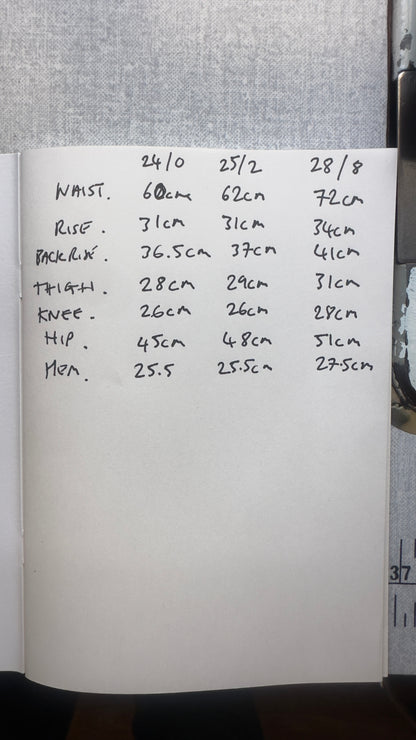 24/0 25/2 28/8
WAIST. 60cm 62cm 72cm
RISE. 31cm 31cm 34cm
BACKRISE. 36.5cm 37cm 41cm
THIGH. 28cm 29cm 31cm
KNEE. 26cm 26cm 28cm
HIP. 45cm 48cm 51cm
HEM. 25.5 25.5cm 27.5cm
37